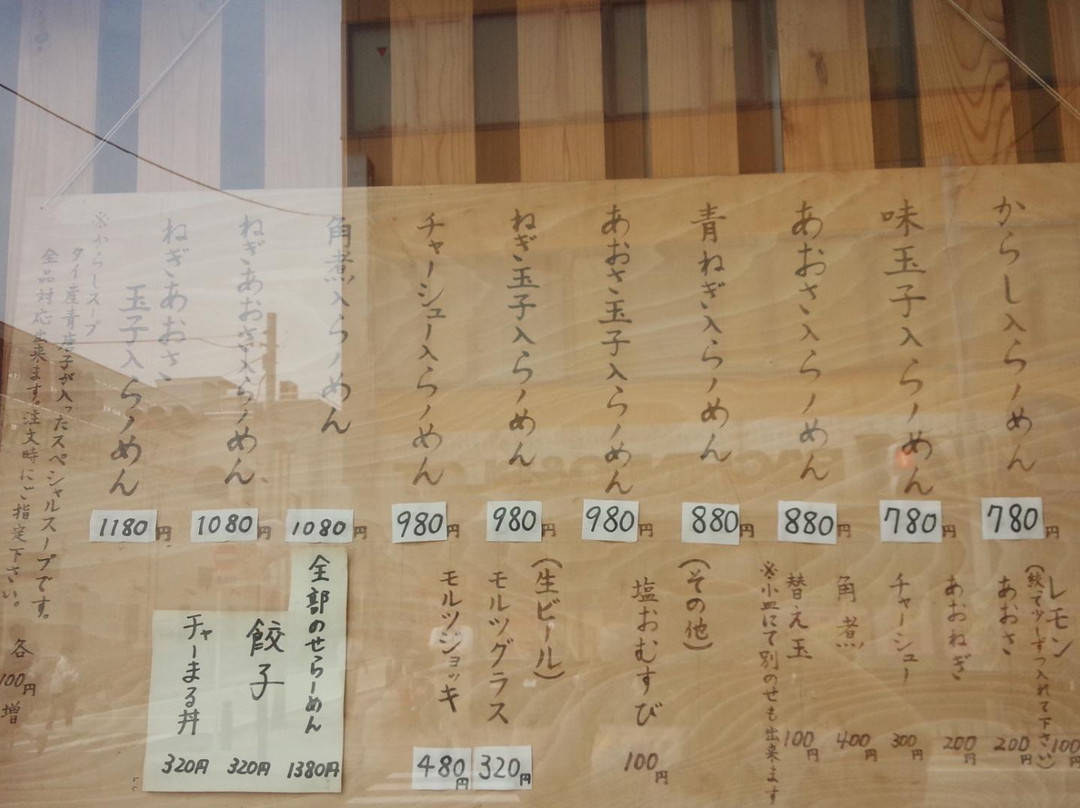 からし入らーめん
780円
味玉子入らーめん
780円
あおさ入らーめん
880円
青ねぎ入らーめん
880円
あおさ玉子入らーめん
980円
ねぎ玉子入らーめん
980円
チャーシュー入らーめん
980円
角煮入らーめん
1080円
ねぎあおさ入らーめん
1080円
ねぎあおさ
玉子入らーめん
1180円
※からしスープ
タイ産青唐子が入ったスペシャルスープです。
全品対応出来ます。注文時にご指定下さい。
各100円増
レモン
100円
(絞って少しずつ入れて下さい)
あおさ
200円
あおねぎ
200円
チャーシュー
300円
角煮
400円
替え玉
100円
※小皿にて別のせも出来ます
(その他)
塩おむすび
100円
(生ビール)
モルツグラス
320円
モルツジョッキ
480円
全部のせらーめん
1380円
餃子
320円
チャーまる丼
320円